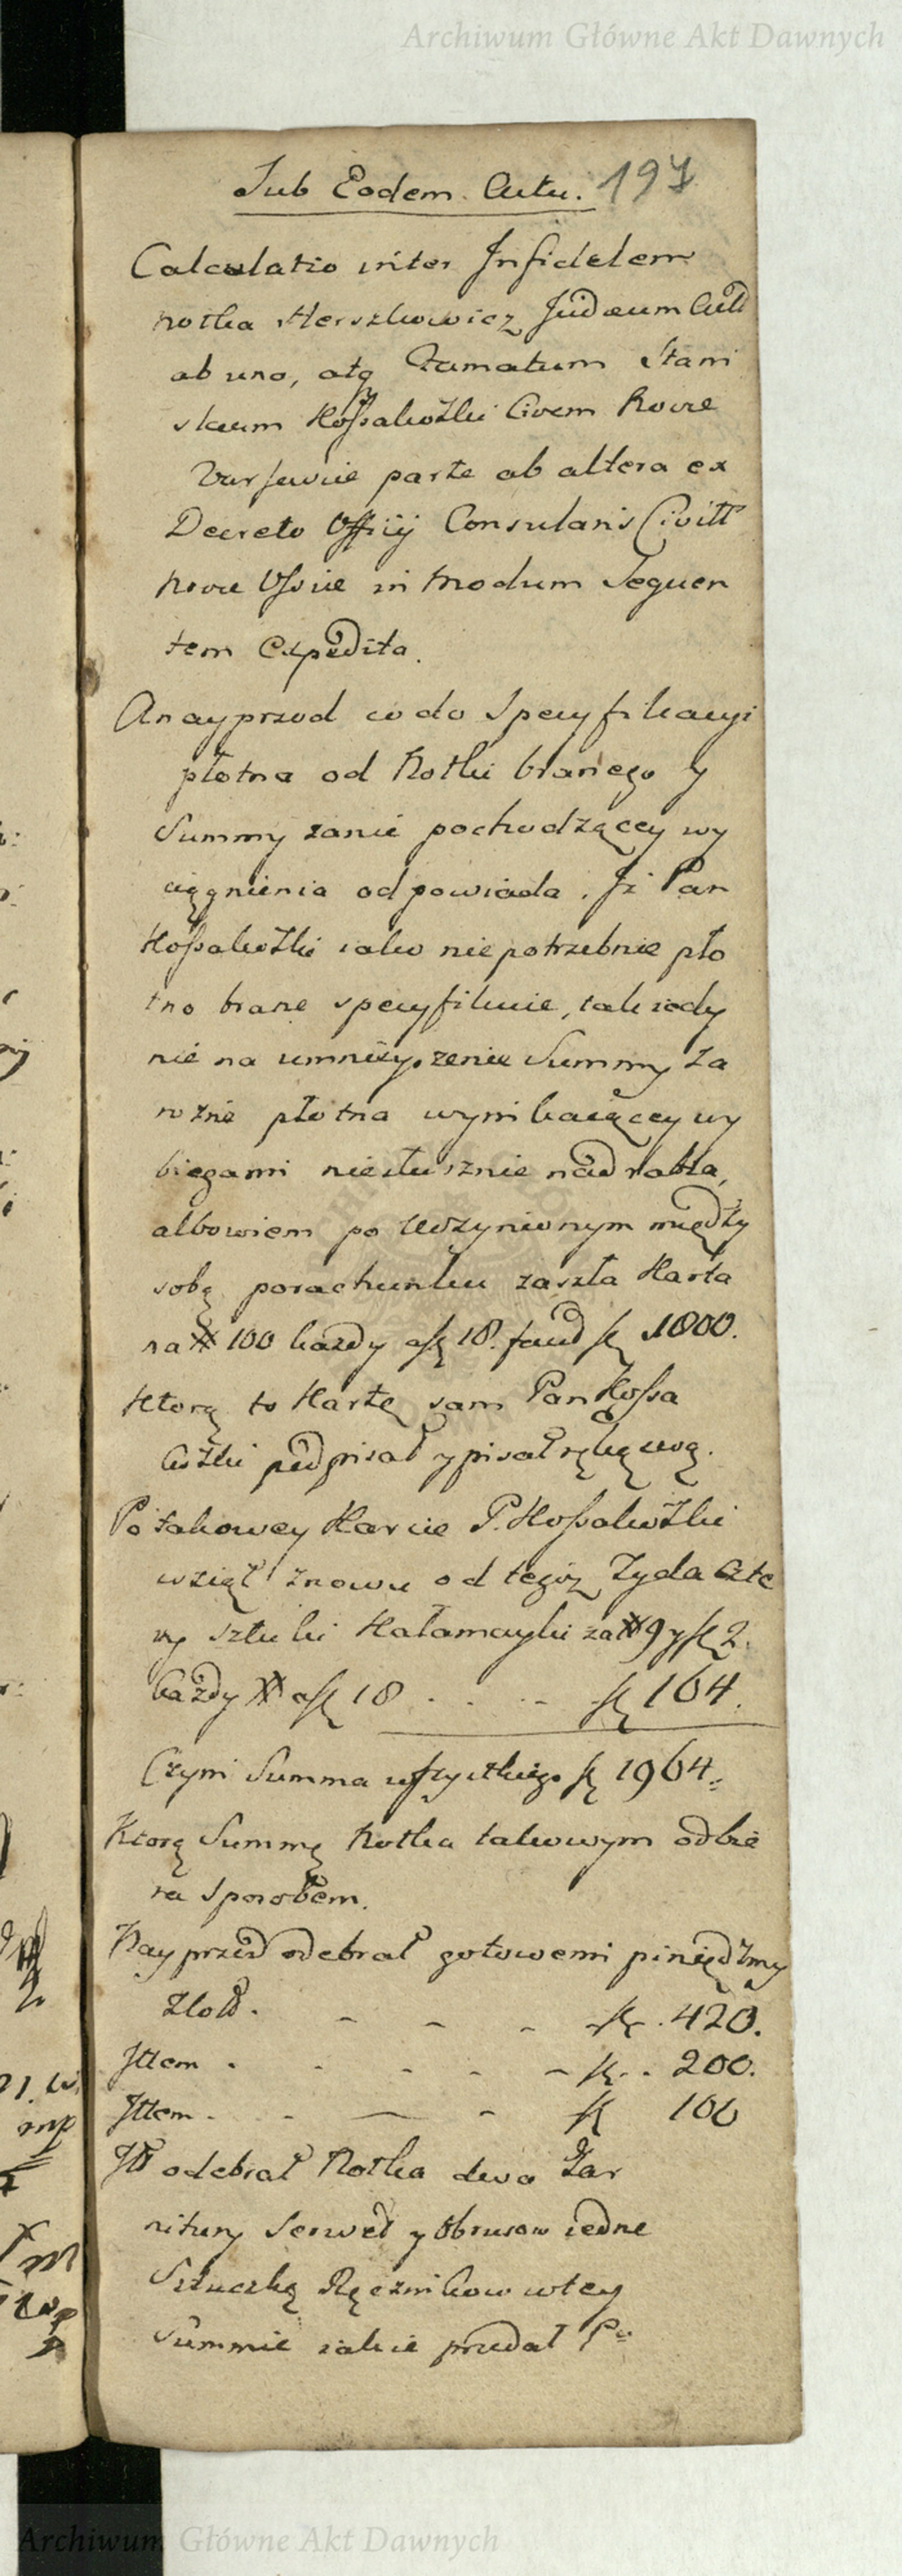 Archiwum Główne Akt Dawnych
Sub Eodem Actu. 197
Calculatio inter Infidelem
Notka Herszkowicz Judæum
ab uno, atq Famatum Stani
slaum Kossakowski Civem Novæ
Varsaviæ parte ab altera ex
Decreto Officij Consularis Civitt
Novæ Vssiæ in modum Sequen
tem Expedita.
A nayprzod co do Specyfikacyi
płotna od Notki branego y
Summy zanie pochodzącey wy
ciągnienia odpowiada. Jż Pan
Kossakowski iako niepotrzebnie pło
tno brane specyfikuie, tak iedy
nie na umnieyszenie Summy za
rożne płotna wynikaiącey wy
biegami niesłusznie nadrabia,
albowiem po uczynionym między
sobą porachunku zaszła Karta
na # 100 każdy a 18. facid 1800.
Ktorą to Kartę sam Pan Kossa
kowski podpisał y pisał ręką swą.
Po takowey Karcie P. Kossakowski
wziął znowu od tegoż Zyda czte
ry sztuki Kałamayki za # 9 y 2.
każdy # a 18 . . . . 164.
Czyni Summa wszystkiego 1964.
Ktorą Summę Notka takowym odbie
ra sposobem.
Nayprzod odebrał gotowemi pieniędzmy
Złott. - - - - 420.
Ittem . . - - - . . 200.
Ittem . - — - 100
Itt odebrał Notka dwa Gar
nitury Serwet y Obrusow iedne
Sztuczkę Ręcznikow wtey
Summie iakie przedał P
Archiwum Główne Akt Dawnych